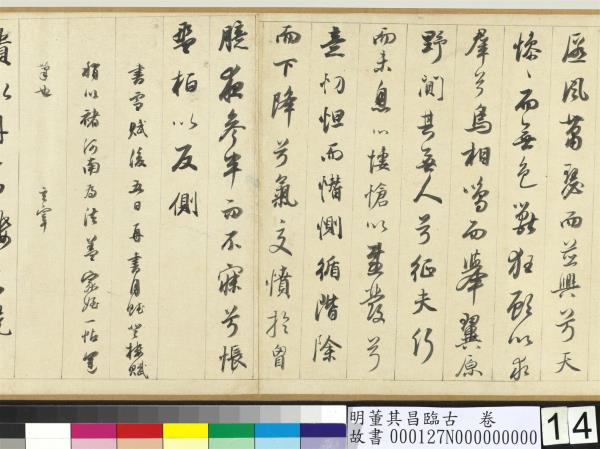 匿風蕭瑟而並興兮天
慘〻而無色獸狂顧以求
羣兮鳥相鳴而舉翼原
野闃其無人兮征夫行
而未息心悽愴以感發兮
意忉怛而憯惻循階除
而下降兮氣交憤於胷
臆夜參半而不寐兮悵
桓以反側
書雪賦後五日再書月賦登樓賦
稍以褚河南為法蓋家姪一帖
筆也
玄宰
明董其昌臨古 卷
故書 000127N000000000
14